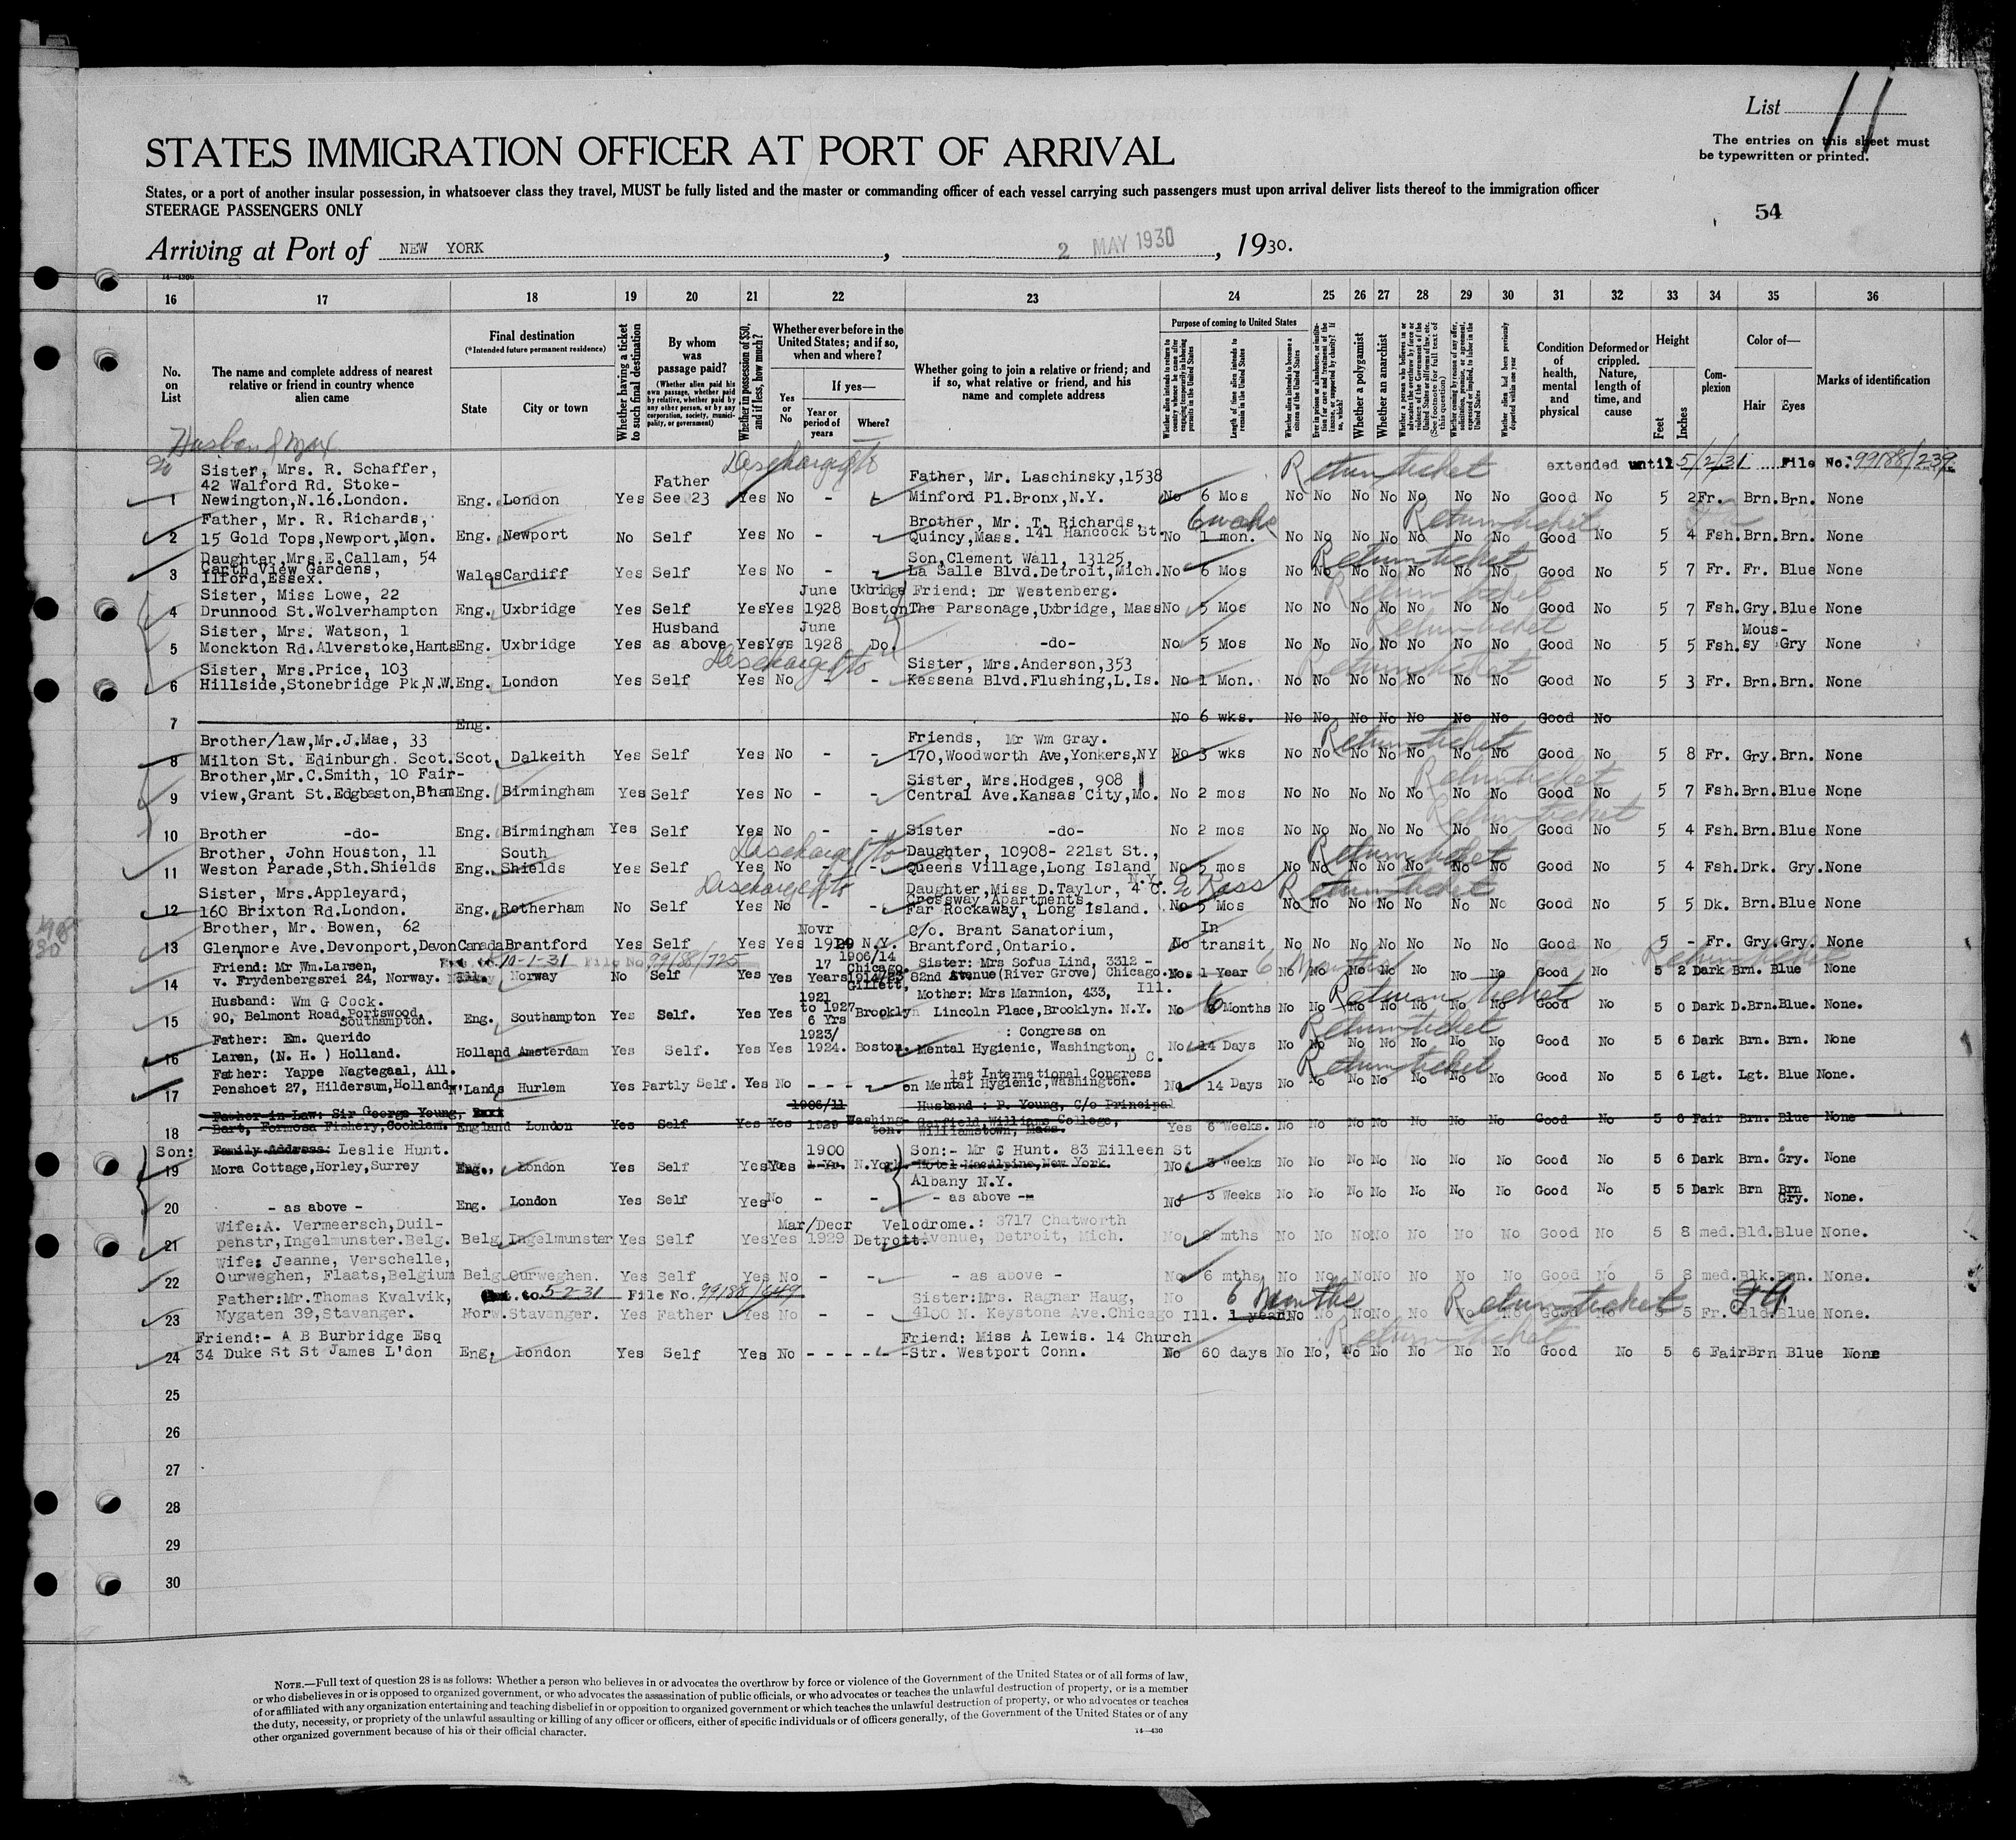 List 11
The entries on this sheet must
be typewritten or printed.
STATES IMMIGRATION OFFICER AT PORT OF ARRIVAL
States, or a port of another insular possession, in whatsoever class they travel, MUST be fully listed and the master or commanding officer of each vessel carrying such passengers must upon arrival deliver lists thereof to the immigration officer
STEERAGE PASSENGERS ONLY
54
Arriving at Port of NEW YORK , 2 MAY 1930 , 1930.
16 17 18 19 20 21 22 23 24 25 26 27 28 29 30 31 32 33 34 35 36
No. on List
The name and complete address of nearest relative or friend in country whence alien came
Final destination
(*Intended future permanent residence)
State
City or town
Whether having a ticket to such final destination
By whom was passage paid?
(Whether alien paid his own passage, whether paid by relative, whether paid by any other person, or by any corporation, society, municipality, or government)
Whether in possession of $50, and if less, how much?
Whether ever before in the United States; and if so, when and where?
Yes or No
If yes—
Year or period of years
Where?
Whether going to join a relative or friend; and if so, what relative or friend, and his name and complete address
Purpose of coming to United States
Length of time alien intends to remain in the United States
Whether alien intends to become a citizen of the United States
Whether a polygamist
Whether an anarchist
Condition of health, mental and physical
Deformed or crippled. Nature, length of time, and cause
Height
Feet
Inches
Complexion
Color of—
Hair
Eyes
Marks of identification
Husband Max
Discharged to
Return ticket
extended until 5/2/31 File No. 99188/239
Sister, Mrs. R. Schaffer, Father Father, Mr. Laschinsky, 1538
42 Walford Rd. Stoke-
1 Newington, N.16. London. Eng. London Yes See 23 Yes No - - Minford Pl. Bronx, N.Y. No 6 Mos No No No No No No No Good No 5 2 Fr. Brn. Brn. None
Father, Mr. R. Richards, Brother, Mr. T. Richards, 6 weeks Return ticket
141 Hancock St.
2 15 Gold Tops, Newport, Mon. Eng. Newport No Self Yes No - - Quincy, Mass. No 1 mon. No No No No No No No Good No 5 4 Fsh. Brn. Brn. None
Daughter, Mrs. E. Callam, 54 Son, Clement Wall, 13125, Return ticket
Garth View Gardens,
3 Ilford, Essex. Wales Cardiff Yes Self Yes No - - La Salle Blvd. Detroit, Mich. No 6 Mos No No No No No No No Good No 5 7 Fr. Fr. Blue None
Sister, Miss Lowe, 22 June Uxbridge Friend: Dr Westenberg. Return ticket
4 Drunnood St. Wolverhampton Eng. Uxbridge Yes Self Yes Yes 1928 Boston The Parsonage, Uxbridge, Mass No 5 Mos No No No No No No No Good No 5 7 Fsh. Gry. Blue None
Sister, Mrs. Watson, 1 Husband June Return ticket Mous-
5 Monckton Rd. Alverstoke, Hants Eng. Uxbridge Yes as above Yes Yes 1928 Do. -do- No 5 Mos No No No No No No No Good No 5 5 Fsh. sy Gry None
Sister, Mrs. Price, 103 Discharged to Sister, Mrs. Anderson, 353 Return ticket
6 Hillside, Stonebridge Pk, N.W. Eng. London Yes Self Yes No - - Kessena Blvd. Flushing, L.Is. No 1 Mon. No No No No No No No Good No 5 3 Fr. Brn. Brn. None
7 Eng. No 6 wks. No No No No No No No Good No
Brother/law, Mr. J. Mae, 33 Friends, Mr Wm Gray. Return ticket
8 Milton St. Edinburgh. Scot. Scot. Dalkeith Yes Self Yes No - - 170, Woodworth Ave, Yonkers, NY No 3 wks No No No No No No No Good No 5 8 Fr. Gry. Brn. None
Brother, Mr. C. Smith, 10 Fair- Sister, Mrs. Hodges, 908 Return ticket
9 view, Grant St. Edgbaston, B'ham Eng. Birmingham Yes Self Yes No - - Central Ave. Kansas City, Mo. No 2 mos No No No No No No No Good No 5 7 Fsh. Brn. Blue None
Return ticket
10 Brother -do- Eng. Birmingham Yes Self Yes No - - Sister -do- No 2 mos No No No No No No No Good No 5 4 Fsh. Brn. Blue None
Brother, John Houston, 11 South Discharged to Daughter, 10908- 221st St., Return ticket
11 Weston Parade, Sth. Shields Eng. Shields Yes Self Yes No - - Queens Village, Long Island N.Y. No 5 mos No No No No No No No Good No 5 4 Fsh. Drk. Gry. None
Sister, Mrs. Appleyard, Discharged to Daughter, Miss D. Taylor, 4 C. Return ticket
Crossway Apartments,
12 160 Brixton Rd. London. Eng. Rotherham No Self Yes No - - Far Rockaway, Long Island. No 5 Mos No No No No No No No Good No 5 5 Dk. Brn. Blue None
Brother, Mr. Bowen, 62 Novr C/o. Brant Sanatorium, In
13 Glenmore Ave. Devonport, Devon Canada Brantford Yes Self Yes Yes N.Y. Brantford, Ontario. No transit No No No No No No No Good No 5 - Fr. Gry. Gry. None
10-1-31 File No. 99188/725
Friend: Mr Wm. Larsen, 17 1906/14 Chicago. Sister: Mrs Sofus Lind, 3312 - 6 Months Return ticket
14 v. Frydenbergsrei 24, Norway. Norway No Self Yes Yes Years 1914/23 Gillett, 82nd Avenue (River Grove) Chicago. Ill. 1 Year No No No No No No No Good No 5 2 Dark Brn. Blue None
Husband: Wm G Cock. 1921 Mother: Mrs Marmion, 433, Return ticket
15 90, Belmont Road, Portswood, Southampton. Eng. Southampton Yes Self. Yes Yes to 1927 6 Yrs Brooklyn Lincoln Place, Brooklyn. N.Y. No 6 Months No No No No No No No Good No 5 0 Dark D.Brn. Blue. None.
Father: Em. Querido 1923/ : Congress on Return ticket
16 Laren, (N. H. ) Holland. Holland Amsterdam Yes Self. Yes Yes 1924. Boston. Mental Hygienic, Washington. D C. No 14 Days No No No No No No No Good No 5 6 Dark Brn. Brn. None
Father: Yappe Nagtegaal, All. 1st International Congress Return ticket
17 Penshoet 27, Hildersum, Holland N'Lands Hurlem Yes Partly Self. Yes No - - - - on Mental Hygienic, Washington. No 14 Days No No No No No No No Good No 5 6 Lgt. Lgt. Blue None.
Father-in Law: Sir George Young, 1906/11 Husband : P. Young, C/o Principal
18 Bart, Formosa Fishery, Cooklam. England London Yes Self Yes Yes 1929 Washing-ton. Garfield, Williams College, Williamstown, Mass. Yes 6 Weeks. No No No No No No No Good No 5 6 Fair Brn. Blue None
Son: Family Address: Leslie Hunt. 1900 Son:- Mr G Hunt. 83 Eilleen St
19 Mora Cottage, Horley, Surrey Eng., London Yes Self Yes Yes 1 Yr. N.York. Hotel Macilpine, New York. No 3 Weeks No No No No No No No Good No 5 6 Dark Brn. Gry. None
Albany N.Y.
20 - as above - Eng. London Yes Self Yes No - - - as above -- No 3 Weeks No No No No No No No Good No 5 5 Dark Brn Brn Gry. None.
Wife: A. Vermeersch, Duil- Mar/Decr Velodrome.: 3717 Chatworth
21 penstr, Ingelmunster. Belg. Belg Ingelmunster Yes Self Yes Yes 1929 Detroit. Avenue, Detroit, Mich. No 6 mths No No No No No No No Good No 5 8 med. Bld. Blue None.
Wife: Jeanne, Verschelle,
22 Ourweghen, Flaats, Belgium Belg Ourweghen. Yes Self Yes No - - - as above - No 6 mths No No No No No No No Good No 5 8 med. Blk. Brn. None.
5-2-31 File No. 99188/649
Father: Mr. Thomas Kvalvik, Sister: Mrs. Ragnar Haug, 6 Months Return ticket
23 Nygaten 39, Stavanger. Norw. Stavanger. Yes Father Yes No - - 4100 N. Keystone Ave. Chicago Ill. No 1 year No No No No No No No Good No 5 5 Fr. Bld. Blue None.
Friend:- A B Burbridge Esq Friend: Miss A Lewis. 14 Church Return ticket
24 34 Duke St St James L'don Eng. London Yes Self Yes No - - - - - - Str. Westport Conn. No 60 days No No, No No No No No Good No 5 6 Fair Brn Blue None
25
26
27
28
29
30
NOTE.—Full text of question 28 is as follows: Whether a person who believes in or advocates the overthrow by force or violence of the Government of the United States or of all forms of law,
or who disbelieves in or is opposed to organized government, or who advocates the assassination of public officials, or who advocates or teaches the unlawful destruction of property, or is a member
of or affiliated with any organization entertaining and teaching disbelief in or opposition to organized government or which teaches the unlawful destruction of property, or who advocates or teaches
the duty, necessity, or propriety of the unlawful assaulting or killing of any officer or officers, either of specific individuals or of officers generally, of the Government of the United States or of any
other organized government because of his or their official character.
14—430